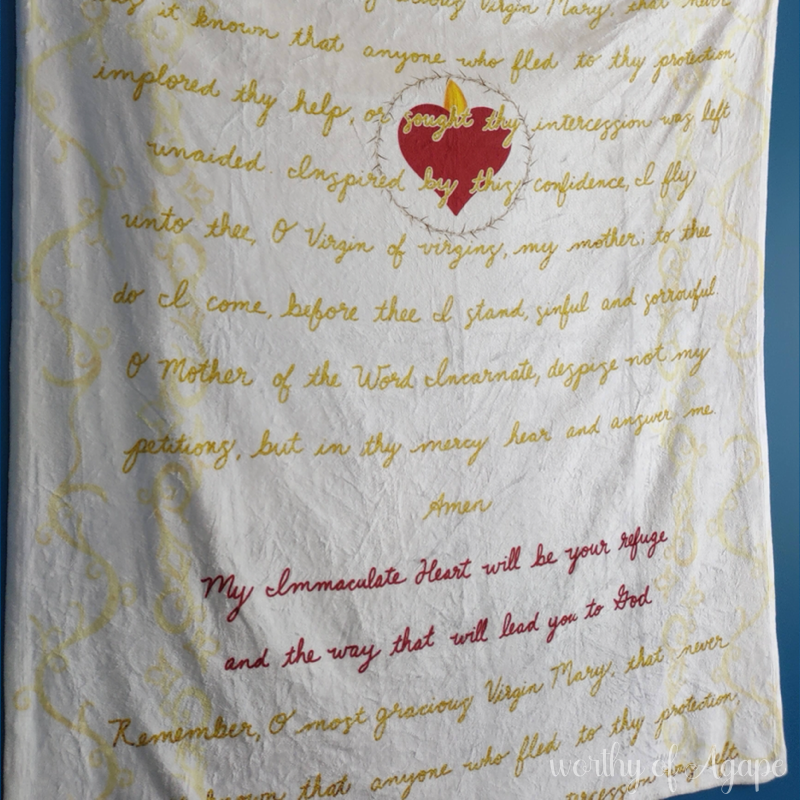 Virgin Mary, that never
it known that anyone who fled to thy protection,
implored thy help, or sought thy intercession was left
unaided. Inspired by this confidence, I fly
unto thee, O Virgin of virgins, my mother; to thee
do I come, before thee I stand, sinful and sorrowful.
O Mother of the Word Incarnate, despise not my
petitions, but in thy mercy hear and answer me.
Amen
My Immaculate Heart will be your refuge
and the way that will lead you to God
Remember, O most gracious Virgin Mary, that never
known that anyone who fled to thy protection,
intercession was left
worthy of Agape